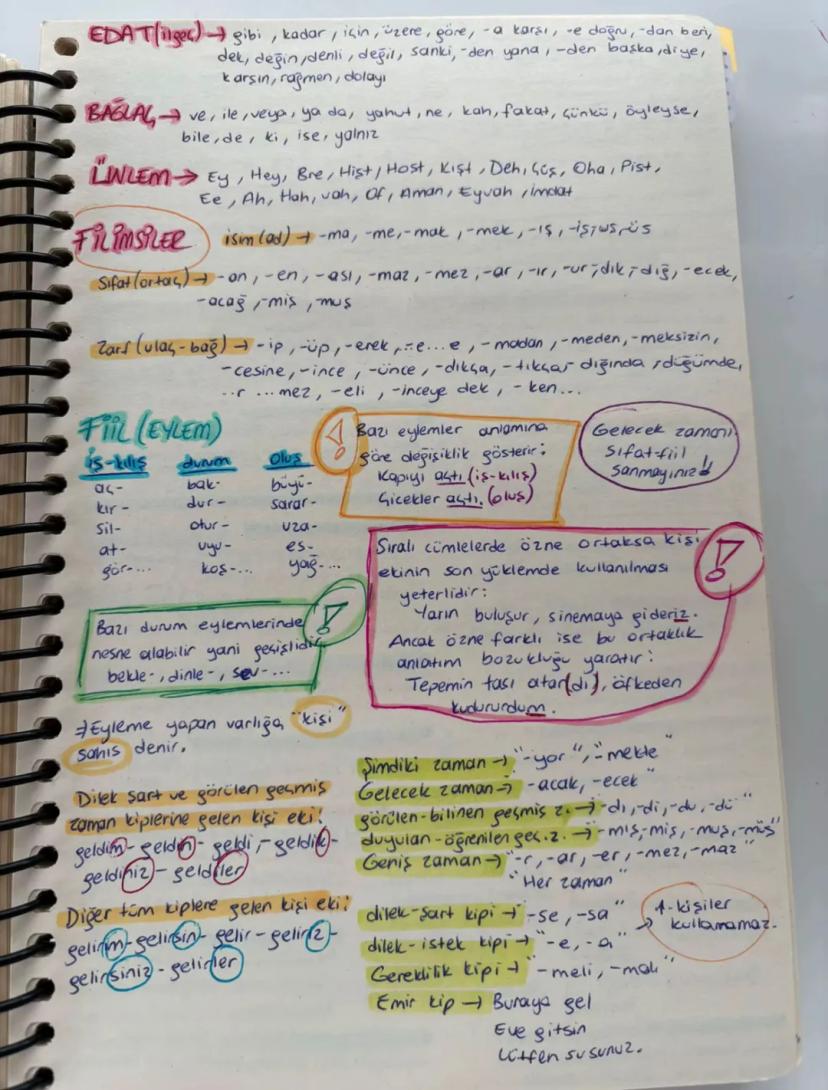 EDAT(ilgeç) → gibi, kadar, için, üzere, göre, -a karşı, -e doğru, -dan beri,
dek, değin, denli, değil, sanki, -den yana, -den başka, diye,
karşın, rağmen, dolayı
BAĞLAÇ → ve, ile, veya, ya da, yahut, ne, kah, fakat, çünkü, öyleyse,
bile, de, ki, ise, yalnız
ÜNLEM → Ey, Hey, Bre, Hişt, Host, Kışt, Deh, Çüş, Oha, Pist,
Ee, Ah, Hah, vah, Of, Aman, Eyvah, İmdat
FİLİMSİLER
isim (ad) → -ma, -me, -mak, -mek, -ış, -iş, -uş, -üş
Sıfat (ortaç) → -an, -en, -ası, -maz, -mez, -ar, -ır, -ur, -dık, -dığ, -ecek,
-acağ, -miş, -muş
Zarf (ulaç-bağ) → -ip, -üp, -erek, -e...e, -madan, -meden, -meksizin,
-cesine, -ince, -ünce, -dıkça, -tıkça, -dığında, -düğümde,
..r ...mez, -eli, -inceye dek, -ken...
FİİL (EYLEM)
iş-kılış durum oluş
aç- bak- büyü-
kır- dur- sarar-
sil- otur- uza-
at- uyu- es-
gör-... koş-... yağ-...
! Bazı eylemler anlamına
göre değişiklik gösterir:
Kapıyı açtı. (iş-kılış)
Çiçekler açtı. (oluş)
Gelecek zamanı
sıfat-fiil
sanmayınız!
Sıralı cümlelerde özne ortaksa kişi !
ekinin son yüklemde kullanılması
yeterlidir:
Yarın buluşur, sinemaya gideriz.
Ancak özne farklı ise bu ortaklık
anlatım bozukluğu yaratır:
Tepemin tası atar(dı), öfkeden
kudururdum.
Bazı durum eylemlerinde !
nesne alabilir yani geçişlidir.
bekle-, dinle-, sev-...
→ Eyleme yapan varlığa "kişi"
şahıs denir.
Dilek şart ve görülen geçmiş
zaman kiplerine gelen kişi eki:
geldim - geldin - geldi, - geldik -
geldiniz - geldiler
Diğer tüm kiplere gelen kişi eki:
gelirim - gelirsin - gelir - geliriz -
gelirsiniz - gelirler
Şimdiki zaman → "-yor", "-mekte"
Gelecek zaman → -acak, -ecek"
görülen-bilinen geçmiş z. → -dı, -di, -du, -dü"
duyulan-öğrenilen geç. z. → -mış, -miş, -muş, -müş"
Geniş zaman → "-r, -ar, -er, -mez, -maz"
"Her zaman"
dilek-şart kipi → "-se, -sa"
dilek-istek kipi → "-e, -a" → 1. kişiler
kullanamaz.
Gereklilik kipi → "-meli, -malı"
Emir kip → Buraya gel
Eve gitsin
Lütfen susunuz.